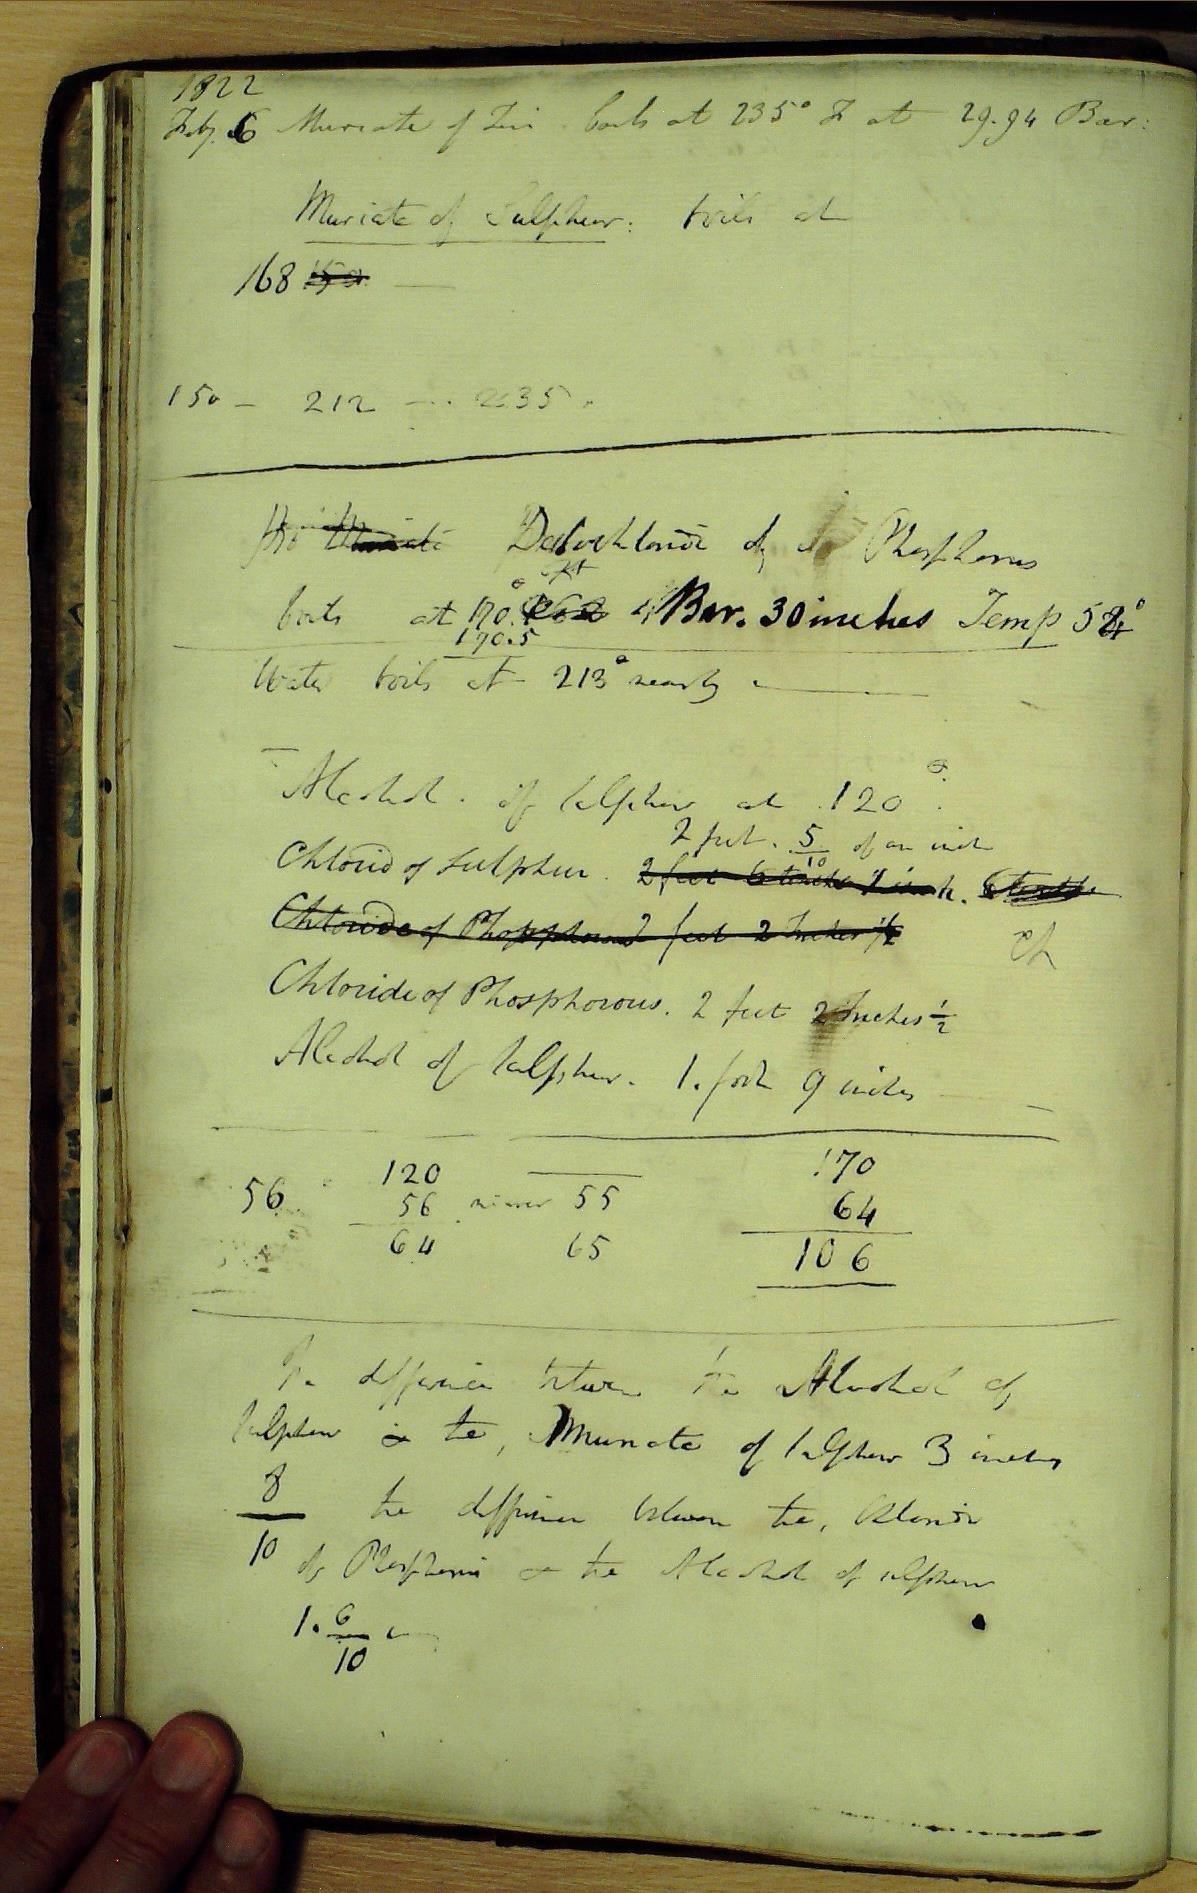 1822
Feby. 6 Muriate of Tin. boils at 235° F at 29.94 Bar:
Muriate of Sulphur: boils at
168 150
150 - 212 - 235.
Muriate Deutochloride of Phosphorus
boils at 170. Bar. 30 inches Temp 54°
170.5
Water boils at 213° nearly
Alcohol. of Sulphur at 120°.
2 feet. 5/10 of an inch
Chlorid of Sulphur. 2 feet 6 tenths 1 inch.
Chloride of Phosphorus 2 feet 2 Inches 1/2
Ch
Chloride of Phosphorous. 2 feet 2 Inches 1/2
Alcohol of Sulphur. 1. foot 9 inches
120 170
56 56 55 64
64 65 106
The difference between the Alcohol of
Sulphur & the, Muriate of Sulphur 3 inches
8/10 the difference between the, Chloride
of Phosphorus & the Alcohol of Sulphur
1. 6/10